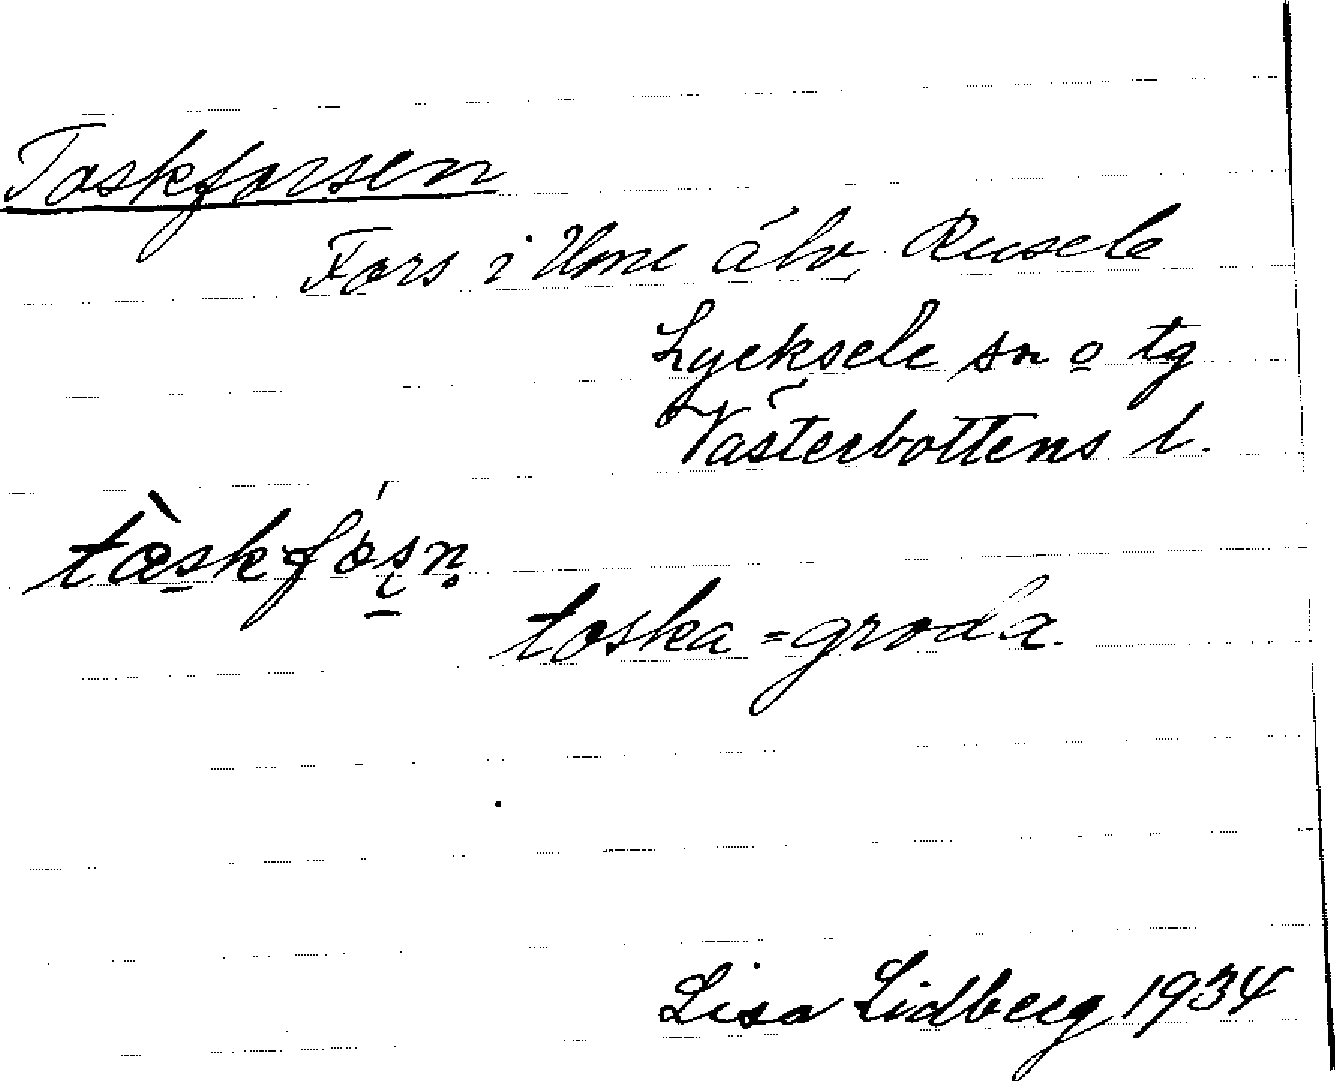 Toskforsen
Fors i Ume älv, Rusele
Lycksele sn o tg
Västerbottens l.
toska = groda.
Lisa Lidberg 1934